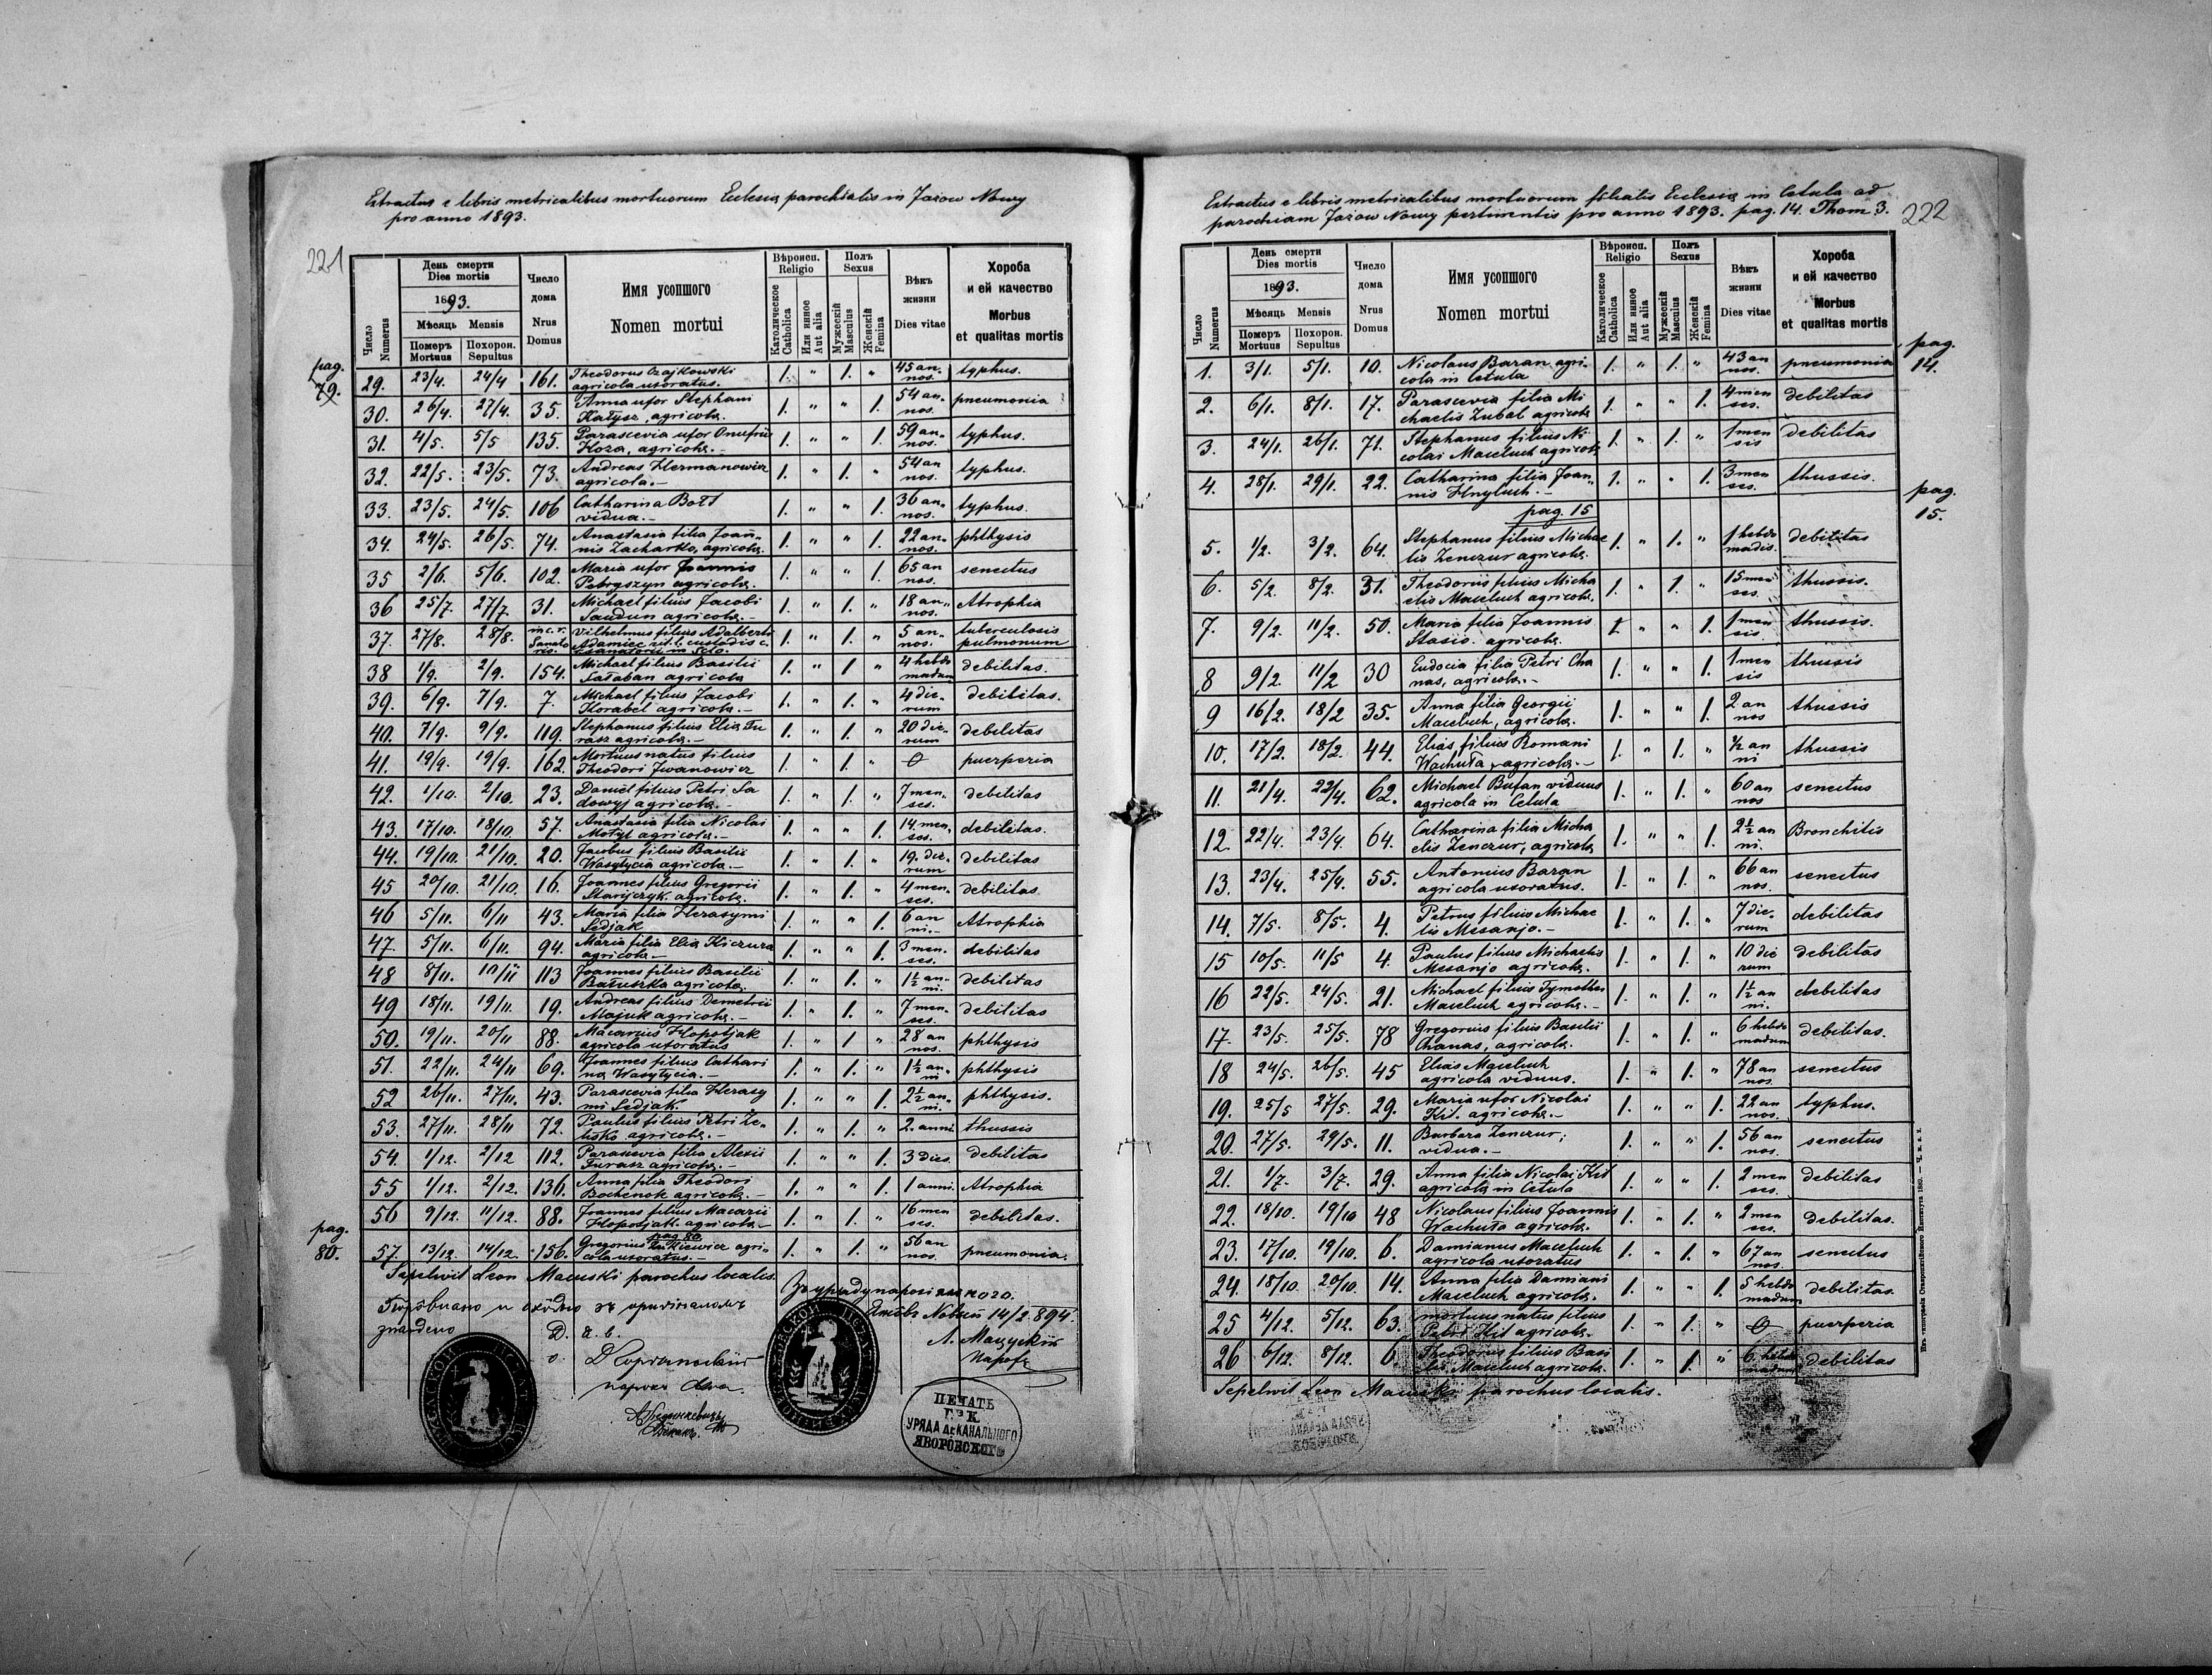 Extractus e libris metricalibus mortuorum Ecclesiæ parochialis in Jazow Nowy
pro anno 1893.
221
Число Numerus
День смерти
Dies mortis
1893.
Мѣсяць Mensis
Померъ Mortuus
Похорон. Sepultus
Число дома
Nrus Domus
Имя усопшого
Nomen mortui
Вѣроисп.
Religio
Католическое Catholica
Или инное Aut alia
Полъ
Sexus
Мужескій Masculus
Женскій Femina
Вѣкъ жизни
Dies vitae
Хороба и ей качество
Morbus et qualitas mortis
pag.
79.
29. 23/4. 24/4 161. Theodorus Czajkowski agricola uxoratus. 1. " 1. " 45 annos. typhus.
30. 26/4. 27/4. 35. Anna uxor Stephani Kałysz, agricolæ. 1. " " 1. 54 annos. pneumonia
31. 4/5. 5/5 135. Parascevia uxor Onufrii Koza, agricolæ.- 1. " " 1. 59 annos. typhus.
32. 22/5. 23/5. 73. Andreas Hermanowicz agricola.- 1. " 1. " 54 an nos. typhus.
33. 23/5. 24/5. 106 Catharina Bołd vidua.- 1. " " 1. 36 annos. typhus.
34. 24/5. 26/5. 74. Anastasia filia Joannis Zacharko, agricolæ. 1. " " 1. 22 annos. phthysis
35 2/6. 5/6. 102. Maria uxor Joannis Petryszyn agricolæ. 1. " " 1. 65 an nos. senectus
36 25/7. 27/7. 31. Michael filius Jacobi Saudun agricolæ.- 1. " 1. " 18 annos. Atrophia
37. 27/8. 28/8. in c. r. Sanatoris. Vilhelmus filius Adalberti Adamiec rit. l. custodis c. r. sanatorii in Sklo. 1. " 1. " 5 annos. tuberculosis pulmonum
38 1/9. 2/9. 154. Michael filius Basilii Saraban agricolæ 1. " 1 " 4 hebdo madum debilitas.
39. 6/9. 7/9. 7. Michael filius Jacobi Korabel agricolæ.- 1. " 1. " 4 dierum debilitas.
40. 7/9. 9/9. 119. Stephanus filius Eliæ Furasz agricolæ.- 1. " 1. " 20 dierum debilitas
41. 19/9. 19/9. 162. Mortuus natus filius Theodori Jwanowicz 1. " 1. " 0 puerperia
42. 1/10. 2/10. 23. Daniel filius Petri Sadowyj agricolæ.- 1. " 1. " 7 menses. debilitas
43. 17/10. 18/10. 57. Anastasia filia Nicolai Motyl agricolæ.- 1. " " 1. 14 menses. debilitas.
44. 19/10. 21/10. 20. Jacobus filius Basilii Wasyłycia agricolæ.- 1. " 1. " 19. dierum debilitas
45 20/10. 21/10. 16. Joannes filius Gregorii Starijczyk. agricolæ. 1. " 1. " 4 menses. debilitas.
46 5/11. 6/11 43. Maria filia Herasymi Sedjak 1. " " 1. 6 an ni.- Atrophia
47. 5/11. 6/11. 94. Maria filia Eliæ Kiczura agricolæ.- 1. " " 1. 3 menses. debilitas
48 8/11. 10/11 113 Joannes filius Basilii Batuszka agricolæ. 1. " 1. " 1½ anni. debilitas
49 18/11. 19/11. 19. Andreas filius Demetrii Majuk agricolæ.- 1. " 1. " 7 menses. debilitas
50. 19/11. 20/11 88. Macarius Hopotjak agricola uxoratus 1. " 1 " 28 an nos. phthysis
51. 22/11. 24/11 69. Joannes filius Catharinæ Wasyłycia.- 1. " 1. " 1½ anni phthysis
52 26/11. 27/11. 43. Parascevia filia Herasymi Sedjak. 1. " " 1. 2½ anni. phthysis.
53. 27/11. 28/11 72. Paulus filius Petri agricolæ.- 1. " 1. " 2. anni. thussis
54. 1/12. 2/12 112. Parascevia filia Alexii Furasz agricolæ.- 1. " " 1. 3 dies. debilitas
55 1/12. 2/12. 136. Anna filia Theodori Bochenok agricolæ.- 1. " " 1. 1 anni. Atrophia
56 9/12. 11/12. 88. Joannes filius Macarii Hopotjak agricolæ.- 1. " 1. " 16 men ses. debilitas.
pag.
80.
pag 80
57. 13/12. 14/12. 156. Gregorius Łukiewicz agricola uxoratus.- 1. " 1. " 56 an nos. pneumonia.
Sepelivit Leon Macuski parochus localis.
Зъ уряду парохіяльного.
Порôвнано и сходно зъ оригіналомъ
знайдено
Язôвъ Новый 14/2 894.
Л. Мацускій
Парохъ
ПЕЧАТЬ
Г.Р.К.
УРЯДА ДЕКАНАЛЬНОГО
ЯВОРÔВСКОГО
Extractus e libris metricalibus mortuorum filialis Ecclesiæ in Cetula ad
parochiam Jazow Nowy pertinentis pro anno 1893. pag. 14. Thom 3.
222
Число Numerus
День смерти
Dies mortis
1893.
Мѣсяць Mensis
Померъ Mortuus
Похорон. Sepultus
Число дома
Nrus Domus
Имя усопшого
Nomen mortui
Вѣроисп.
Religio
Католическое Catholica
Или инное Aut alia
Полъ
Sexus
Мужескій Masculus
Женскій Femina
Вѣкъ жизни
Dies vitae
Хороба и ей качество
Morbus et qualitas mortis
pag.
14.
1. 3/1. 5/1. 10. Nicolaus Baran agricola in Cetula 1. " 1. " 43 an nos. pneumonia
2. 6/1. 8/1. 17. Parascevia filia Michaelis Zubal agricolæ 1. " " 1. 4 men ses. debilitas
3. 24/1. 26/1. 71. Stephanus filius Nicolai Maceluch agricolæ 1. " 1. " 1 men sis debilitas
4. 28/1. 29/1. 22. Catharina filia Joannis Hnyluch.- 1. " " 1. 3 men ses. thussis.
pag. 15
pag.
15.
5. 1/2. 3/2. 64. Stephanus filius Michaelis Zenczur agricolæ. 1. " 1. " 1 hebdo madis. debilitas
6. 5/2. 8/2. 31. Theodorus filius Michaelis Maceluch agricolæ. 1. " 1. " 15 men ses. thussis.
7. 9/2. 11/2. 50. Maria filia Joannis Stasio. agricolæ. 1. " " 1. 1 men sis. thussis.
8 9/2. 11/2 30 Eudocia filia Petri Chanas, agricolæ.- 1. " " 1. 1 men sis thussis
9 16/2. 18/2 35. Anna filia Georgii Maceluch, agricolæ. 1. " " 1. 2 an nos thussis
10. 17/2. 18/2. 44. Elias filius Romani Wachuła, agricolæ.- 1. " 1. " ½ an ni thussis
11. 21/4. 22/4. 62. Michael Bufan viduus agricola in Cetula 1. " 1. " 60 an nos senectus
12. 22/4. 23/4. 64. Catharina filia Michaelis Zenczur, agricolæ 1. " " 1. 2½ an ni. Bronchitis
13. 23/4. 25/4. 55. Antonius Baran agricola uxoratus. 1. " 1. " 66 an nos. senectus
14. 7/5. 8/5. 4. Petrus filius Michaelis Mesanjo.- 1. " 1. " 7 dierum debilitas
15 10/5. 11/5 4. Paulus filius Michaelis Mesanjo agricolæ. 1. " 1. " 10 die rum debilitas
16 22/5. 24/5. 21. Michael filius Tymothei Maceluch agricolæ.- 1. " 1. " 1½ an ni. debilitas
17. 23/5. 25/5. 78 Gregorius filius Basilii Chanas, agricolæ. 1. " 1. " 6 hebdo madum debilitas.
18 24/5. 26/5. 45 Elias Maceluch agricola viduus. 1. " 1. " 78 an nos. senectus
19. 25/5 27/5. 29. Maria uxor Nicolai Kit. agricolæ.- 1. " " 1. 22 an nos. typhus.
20. 27/5. 29/5. 11. Barbara Zenczur; vidua.- 1. " " 1. 56 an nos. senectus
21. 1/7. 3/7. 29. Anna filia Nicolai Kit agricolæ in Cetula 1. " " 1. 2 men ses. debilitas
22. 18/10. 19/10 48 Nicolaus filius Joannis Wachuła agricolæ. 1. " 1. " 2 men ses. debilitas.
23. 17/10. 19/10. 6. Damianus Maceluch agricola uxoratus 1. " 1. " 67 an nos. senectus
24. 18/10. 20/10. 14. Anna filia Damiani Maceluch agricolæ. 1. " " 1. 5 hebdo madum debilitas.
25 4/12. 5/12. 63. mortuus natus filius Petri Kit agricolæ. 1. " 1. " 0 puerperia
26 6/12. 8/12. 6. Theodorus filius Basilii Maceluch agricolæ. 1. " 1. " 6 hebdo madum debilitas
Sepelivit Leon Macuski parochus localis.